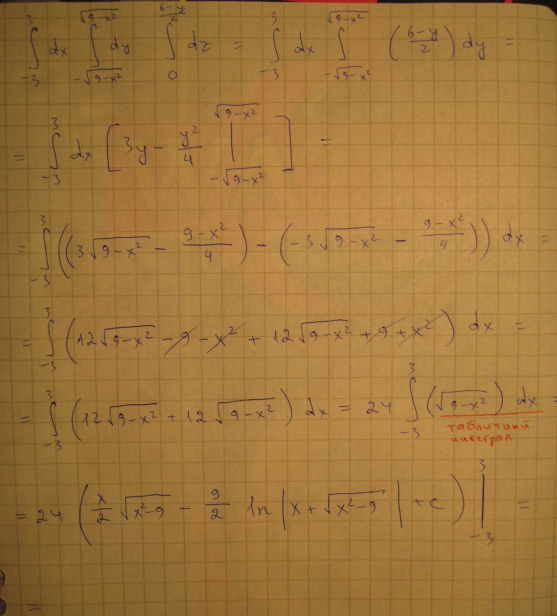 ∫_{-3}^{3} dx ∫_{-√(9-x²)}^{√(9-x²)} dy ∫_{0}^{(6-y)/2} dz = ∫_{-3}^{3} dx ∫_{-√(9-x²)}^{√(9-x²)} ((6-y)/2) dy =
= ∫_{-3}^{3} dx [3y - y²/4 |_{-√(9-x²)}^{√(9-x²)}] =
= ∫_{-3}^{3} ((3√(9-x²) - (9-x²)/4) - (-3√(9-x²) - (9-x²)/4)) dx =
= ∫_{-3}^{3} (12√(9-x²) - 9 - x² + 12√(9-x²) + 9 + x²) dx =
= ∫_{-3}^{3} (12√(9-x²) + 12√(9-x²)) dx = 24 ∫_{-3}^{3} (√(9-x²)) dx =
табличный
интеграл
= 24 (x/2 √(x²-9) - 9/2 ln|x + √(x²-9)| + c) |_{-3}^{3} =
=